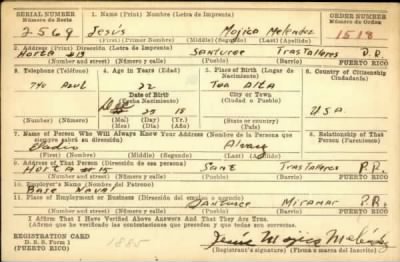 SERIAL NUMBER
Número de Serie
1. Name (Print) Nombre (Letra de Imprenta)
ORDER NUMBER
Número de Orden
2569
Jesús Mojica Melendez
1518
(First) (Primer Nombre) (Middle) (Segundo) (Last) (Apellido)
2. Address (Print) Dirección (Letra de Imprenta)
Santurce Trastalleres
(Number and street) (Número y calle) (Town) (Pueblo) (Barrio) PUERTO RICO
3. Telephone (Teléfono)
4. Age in Years (Edad)
5. Place of Birth (Lugar de Nacimiento)
6. Country of Citizenship
Ciudadanía
22
Toa Alta
Date of Birth
(Fecha Nacimiento)
CITY or TOWN
(Ciudad o Pueblo)
18
U.S.A.
(Mo.) (Day) (Yr.)
(Mes) (Día) (Año)
(State or country)
(Estado o país)
7. Name of Person Who Will Always Know Your Address (Nombre de la Persona que siempre sabrá su dirección)
8. Relationship of That Person (Parentesco)
(First) (Primer Nombre) (Middle) (Segundo) (Last) (Apellido)
9. Address of That Person (Dirección de esa persona)
Trastalleres P.R.
(Number and street) (Número y calle) (Town) (Pueblo) (Barrio) PUERTO RICO
10. Employer's Name (Nombre del Patrono)
Base Naval
11. Place of Employment or Business (Dirección del empleo o negocio)
Santurce Miramar P.R.
(Number and street) (Número y calle) (Town) (Pueblo) (Barrio) PUERTO RICO
I Affirm That I Have Verified Above Answers And That They Are True.
Afirmo que he verificado las contestaciones que preceden y que todas son correctas.
REGISTRATION CARD
D. S. S. Form 1
PUERTO RICO
1885
Jesus Mojica Meléndez
Registrant's signature) (Firma del Inscrito)